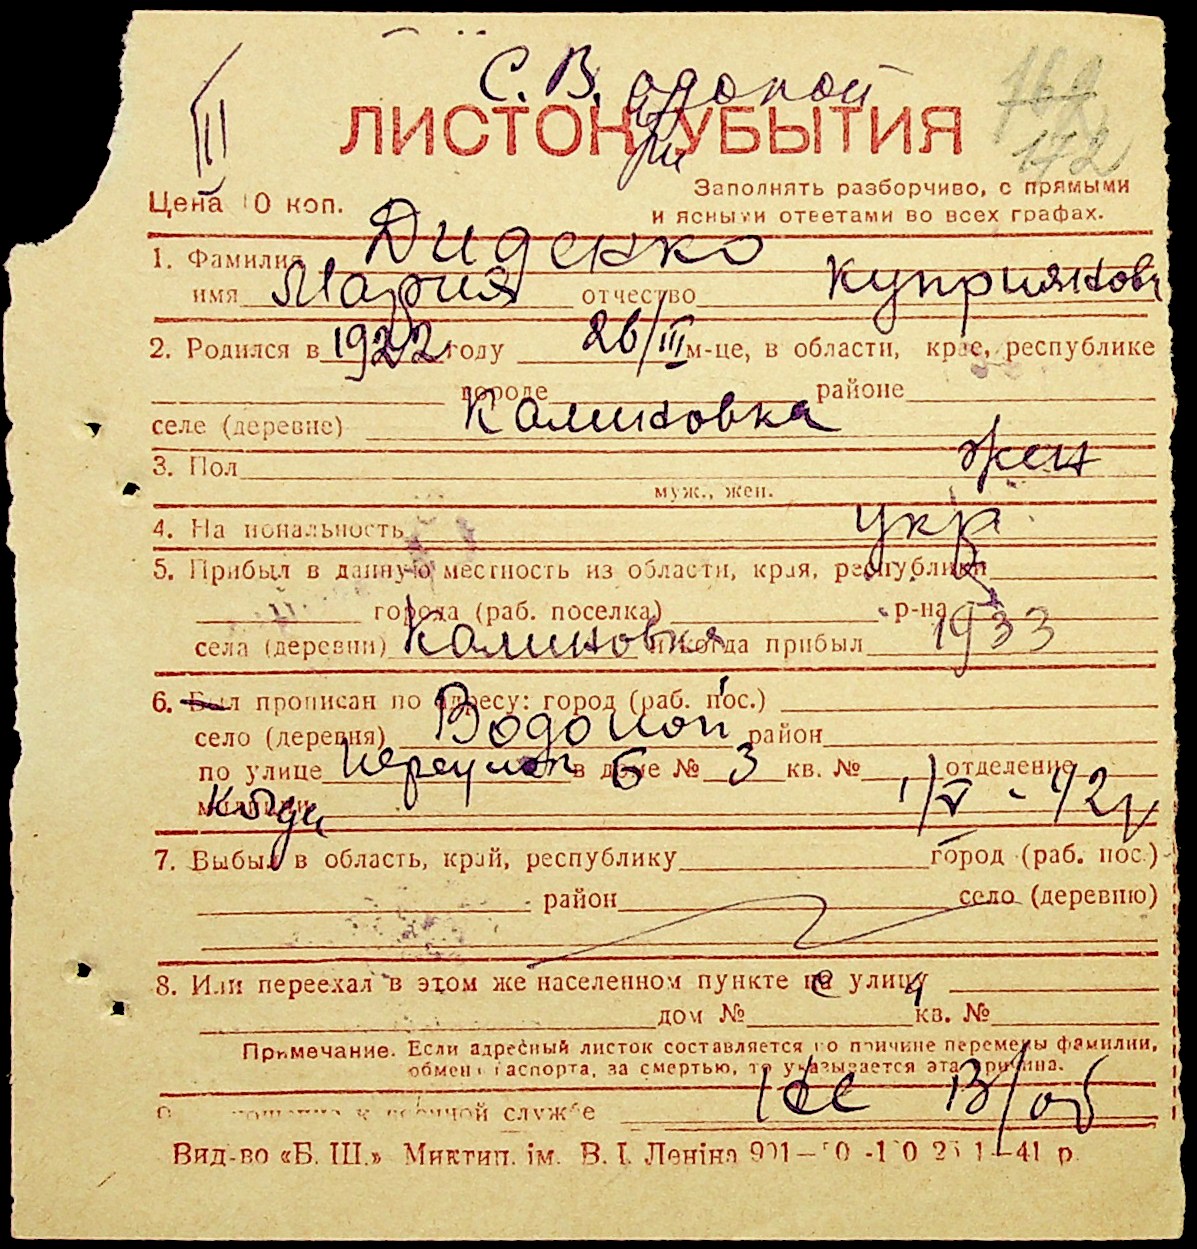 С. Водопой
III
162
172
ЛИСТОК УБЫТИЯ
Цена 10 коп.
Заполнять разборчиво, с прямыми
и ясными ответами во всех графах.
1. Фамилия Диденко
имя Мария отчество Куприянов
2. Родился в 1922 году 26/III м-це, в области, крае, республике
городе районе
селе (деревне) Калиновка
3. Пол жен
муж., жен.
4. Национальность укр.
5. Прибыл в данную местность из области, края, республики
города (раб. поселка) р-на
села (деревни) Калиновка и когда прибыл 1933
6. Был прописан по адресу: город (раб. пос.)
село (деревня) Водопой район
по улице переулок 6 в доме № 3 кв. № отделение
милиции когда 1/V - 42
7. Выбыл в область, край, республику город (раб. пос.)
район село (деревню)
8. Или переехал в этом же населенном пункте на улицу
дом № кв. №
Примечание. Если адресный листок составляется по причине перемены фамилии,
обмена паспорта, за смертью, то указывается эта причина.
Отношение к военной службе не в/об
Вид-во «Б. Ш.» Миктип. ім. В. І. Леніна 41 р.